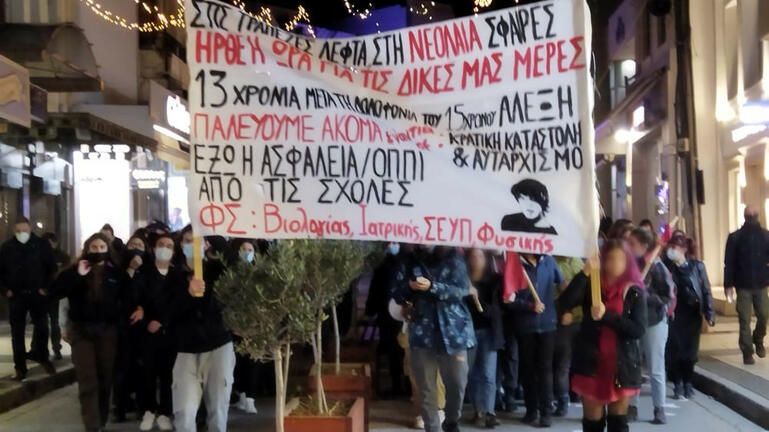 ΣΤΙΣ ΤΡΑΠΕΖΕΣ ΛΕΦΤΑ ΣΤΗ ΝΕΟΛΑΙΑ ΣΦΑΙΡΕΣ
ΗΡΘΕ Η ΩΡΑ ΓΙΑ ΤΙΣ ΔΙΚΕΣ ΜΑΣ ΜΕΡΕΣ
13 ΧΡΟΝΙΑ ΜΕΤΑ ΤΗ ΔΟΛΟΦΟΝΙΑ ΤΟΥ 15χρονου ΑΛΕΞΗ
ΠΑΛΕΥΟΥΜΕ ΑΚΟΜΑ ΣΕ: ΚΡΑΤΙΚΗ ΚΑΤΑΣΤΟΛΗ
& ΑΥΤΑΡΧΙΣΜΟ
ΕΞΩ Η ΑΣΦΑΛΕΙΑ/ΟΠΠΙ
ΑΠΟ ΤΙΣ ΣΧΟΛΕΣ
ΦΣ: Βιολογίας, Ιατρικής, ΣΕΥΠ, Φυσικής